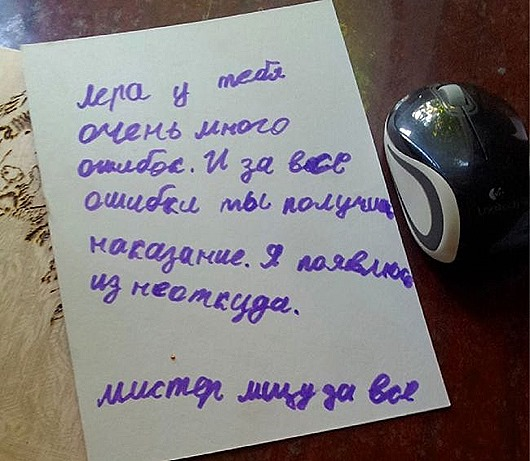 лера у тебя
очень много
ошибок. И за все
ошибки ты получишь
наказание. Я появлюсь
из неоткуда.
мистер мщу за все
Logitech